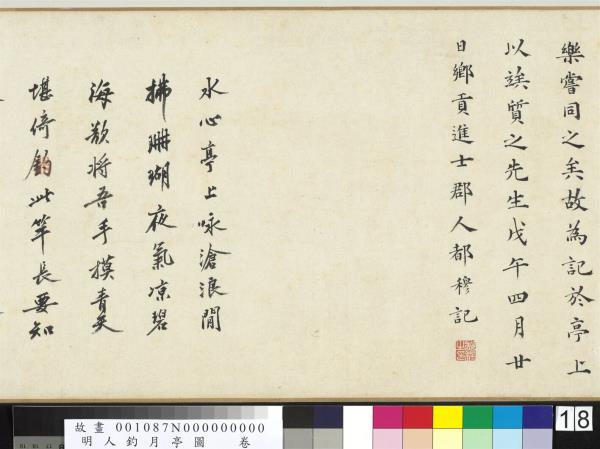 樂嘗同之矣故為記於亭上
以竢質之先生戊午四月廿
日鄉貢進士郡人都穆記
水心亭上咏滄浪閒
拂珊瑚夜氣凉碧
海欲將吾手摸青天
堪倚釣此竿長要知
18
故畫 001087N000000000
明人釣月亭圖 卷